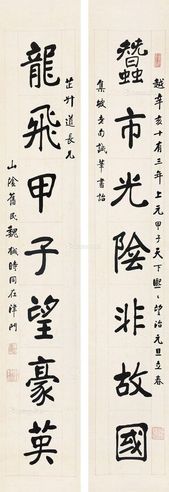 越辛亥十有三年上元甲子天下熙熙望治元旦立春
蠶市光陰非故國
集坡老南海筆書詒
芷升道長兄
龍飛甲子望豪英
山陰舊民魏戫時同在津門